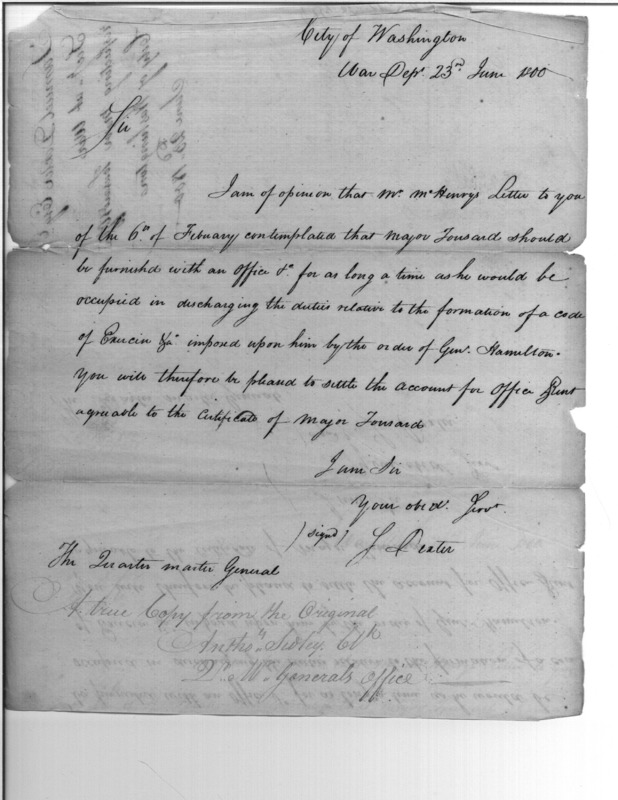 City of Washington
War Dept. 23rd June 1800
Sir
I am of opinion that Mr. McHenrys Letter to you
of the 6th of Febuary contemplated that Major Tousard should
be furnishd with an Office &c for as long a time as he would be
occupied in discharging the duties relative to the formation of a code
of Exercise &c imposed upon him by the order of Genl. Hamilton.
You will therefore be pleasd to settle the account for Office Rent
agreable to the Certificate of Major Tousard
I am Sir
Your obedt. Servt
(signd) S Dexter
The Quarter master General
A true Copy from the Original
Anthoy Clk
Qr. Mr. Generals office